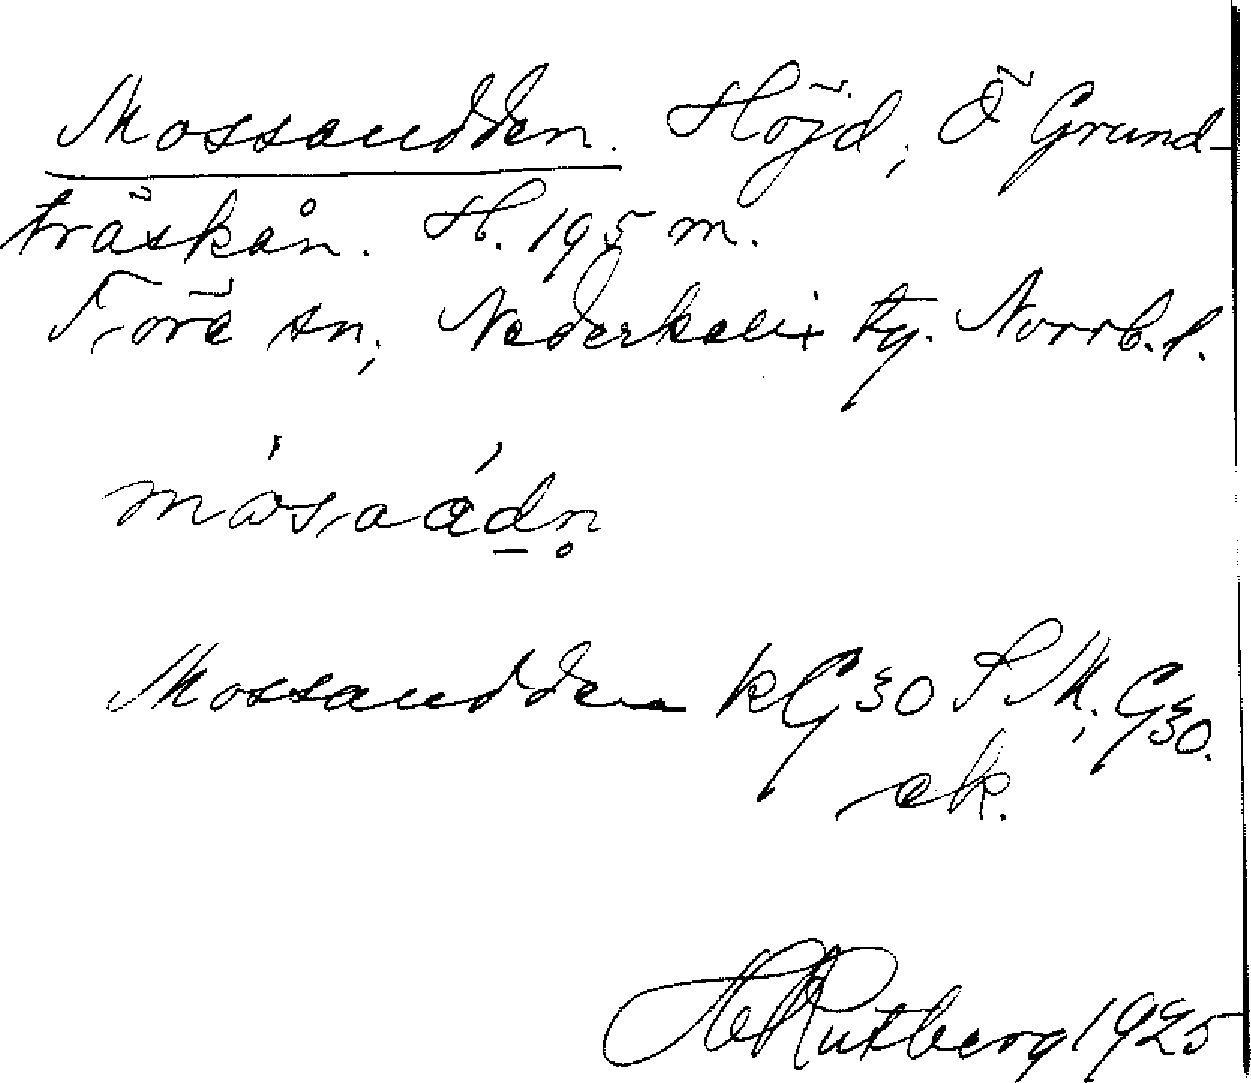 Mossaudden. Höjd, Ö Grund-
träskån. H. 195 m.
Töre sn, Nederkalix tg. Norrb. l.
Mossaudden kG30 SM; G30.
ek.
Rutberg 1925